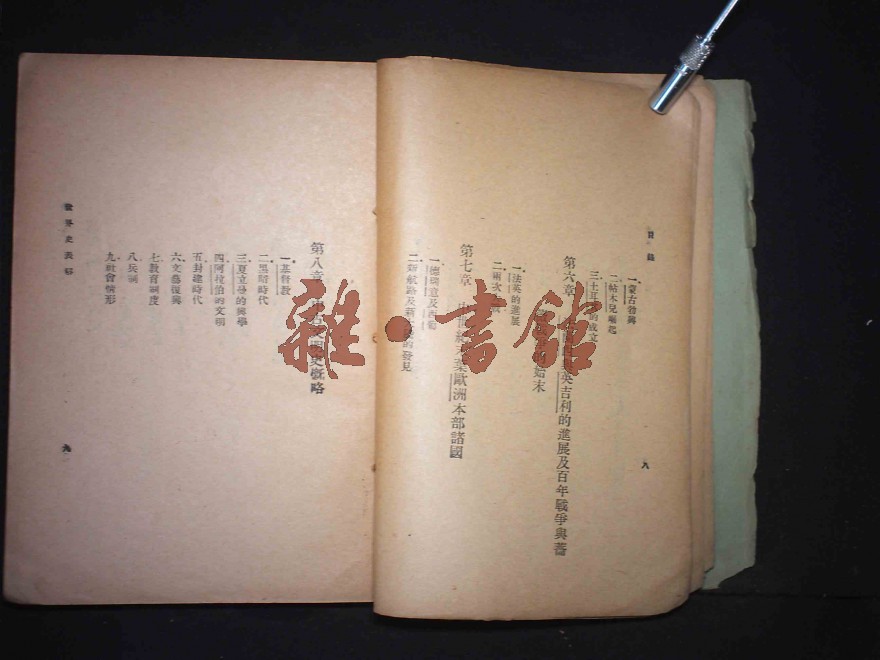 目錄
一、蒙古勃興
二、帖木兒崛起
三、土耳其的成立
第六章 英吉利的進展及百年戰爭與薔
始末
一、法英的進展
二、兩次
第七章 中世紀末葉歐洲本部諸國
一、德瑞意及西葡
二、新航路及新的發見
八
第八章 史概略
一、基督教
二、黑暗時代
三、夏立曼的興學
四、阿拉伯的文明
五、封建時代
六、文藝復興
七、教育制度
八、兵制
九、社會情形
九
雜·書館